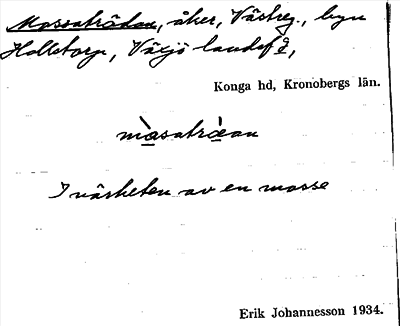 Mossaträden, åker, Västreg., byn
Hallstorp, Växjö landsf å,
Konga hd, Kronobergs län.
mòsatràean
I närheten av en mosse
Erik Johannesson 1934.